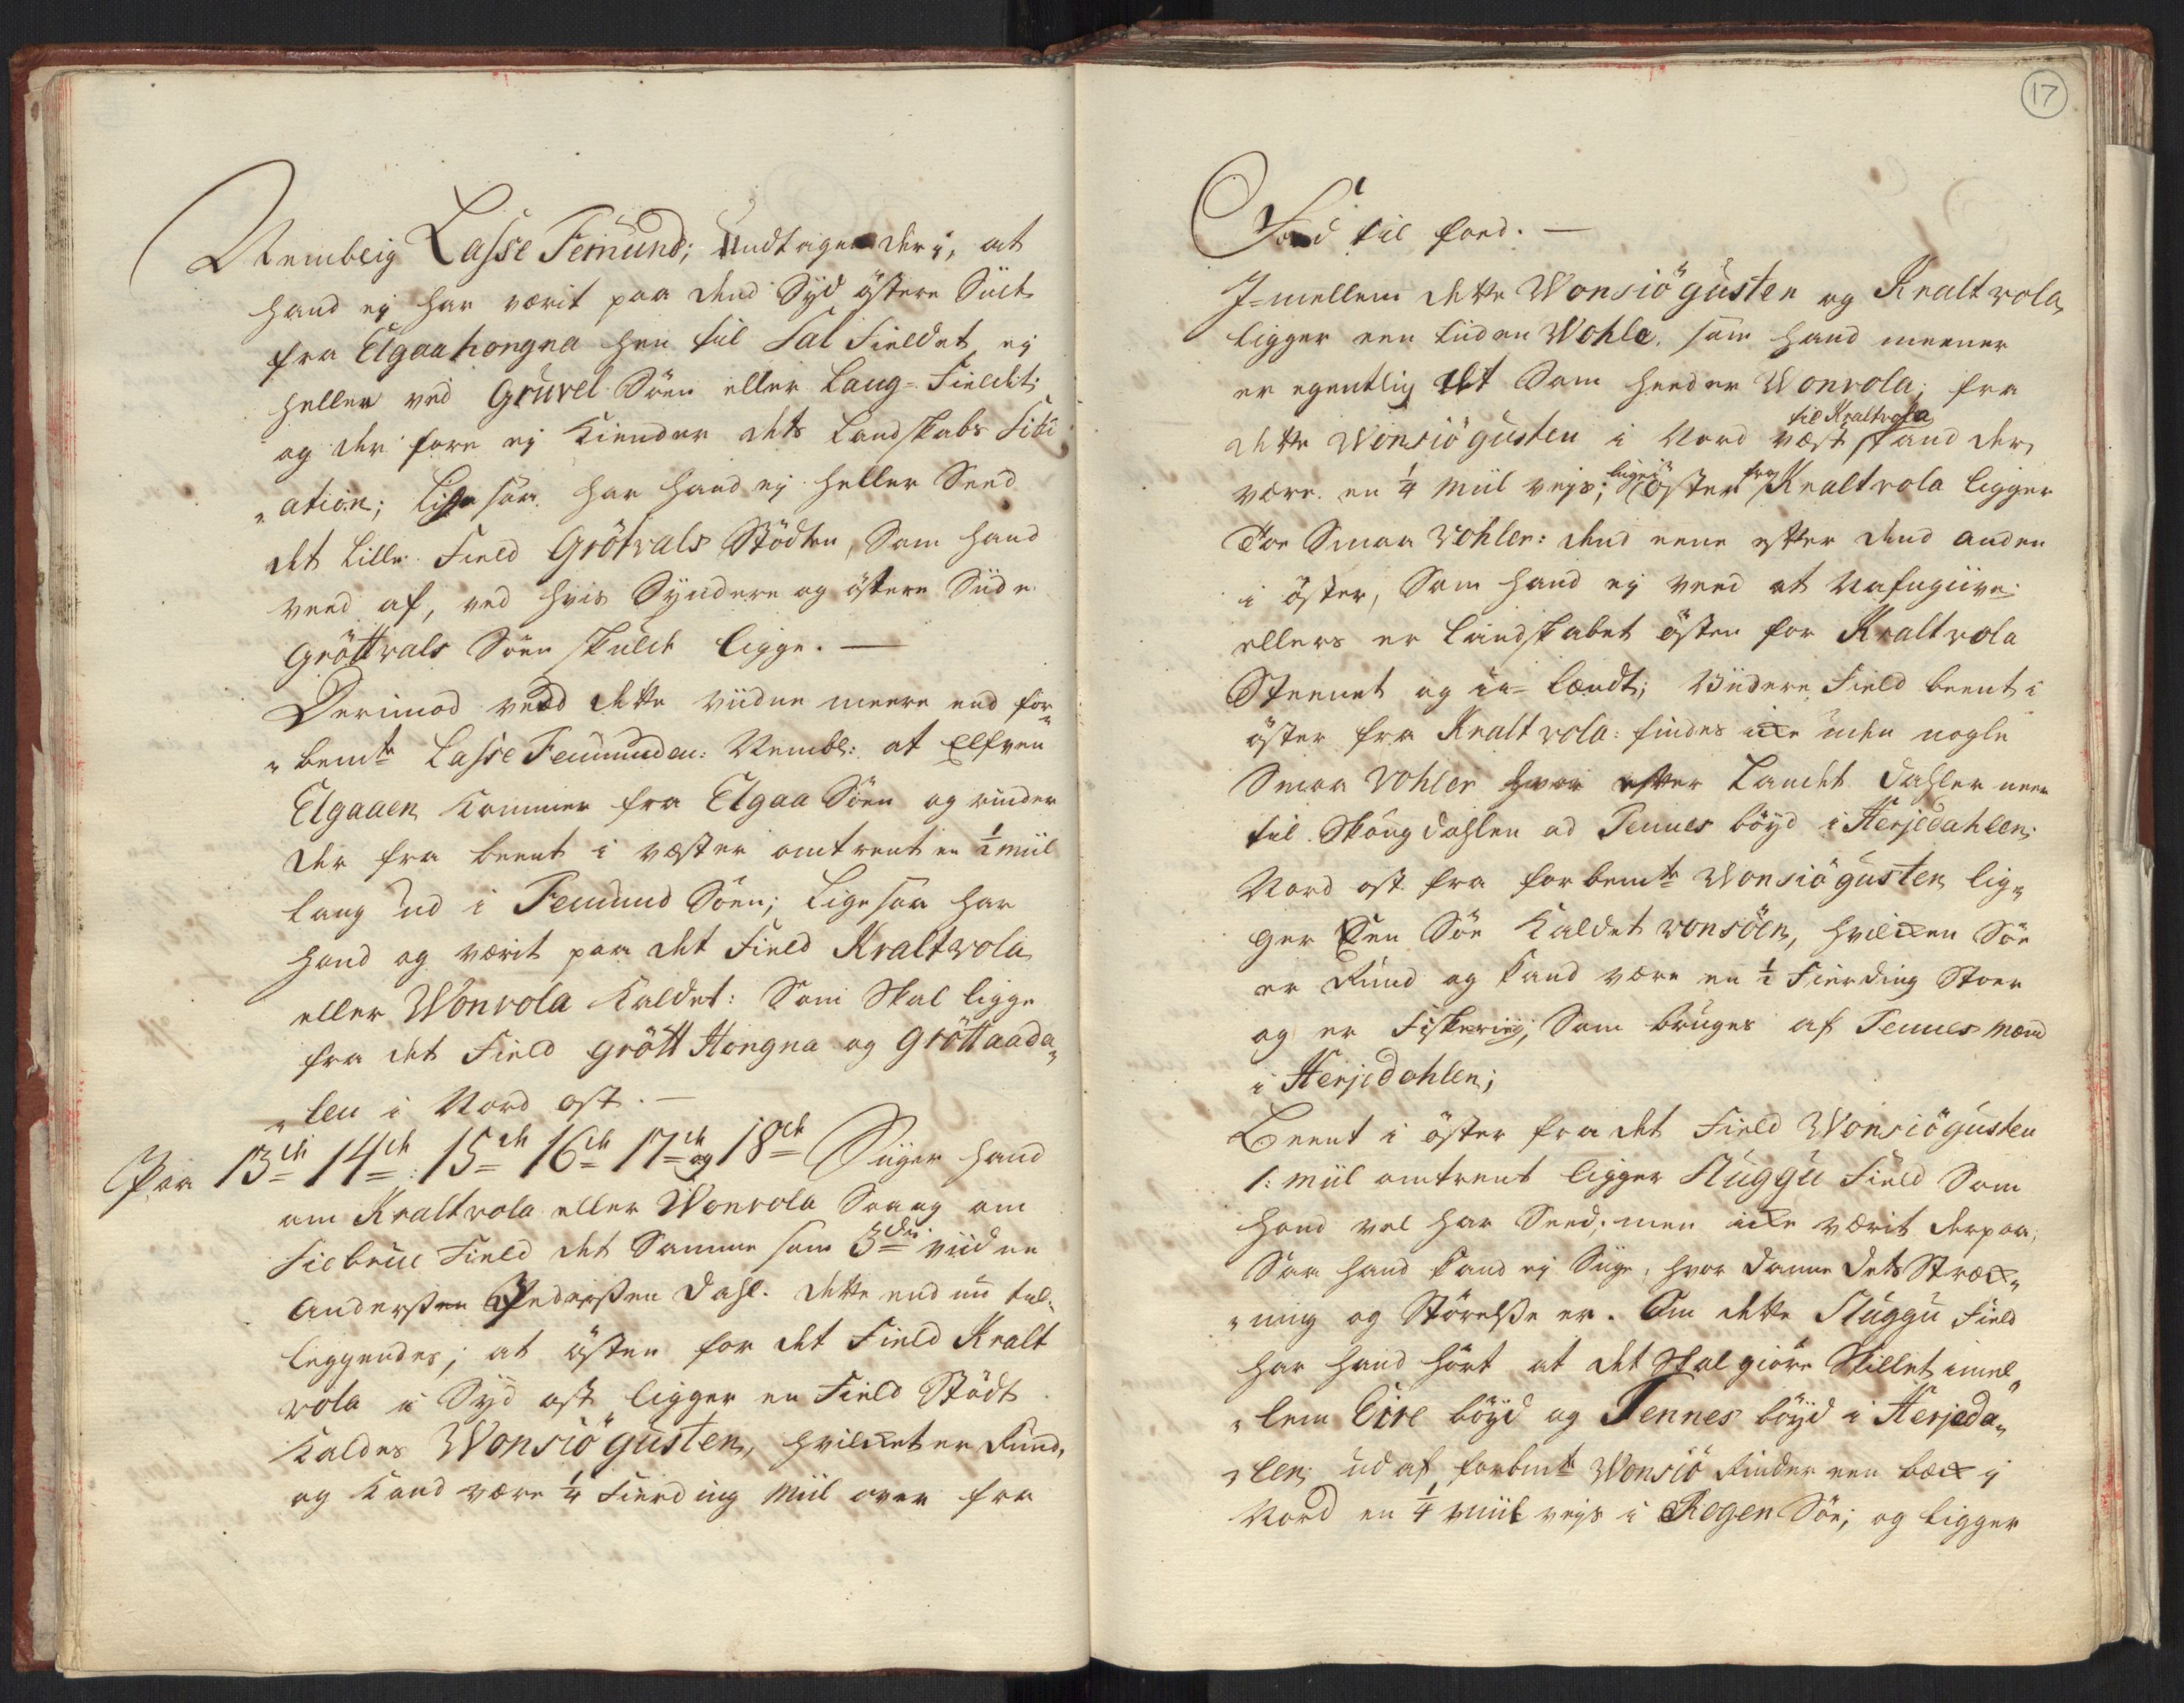 Nembeig Lasse Femund; undtagen der i, at
hand ej har værit paa dend Syd östere Siide
fra Elgaahongna hen til Sal Fieldet ej
heller ved Gruvel Söen eller Lang-Fieldet;
og der fore ej Kiender dets Landskabs Situ
„ation; Ligesaa har hand ej heller Seed
det Lille Field Grötvals Stödten, Som hand
veed af, ved hvis Syndere og östere Siide
Gröttvals Söen skulde ligge. —
Derimod veed dette viidne meere end for„
„bemte Lasse Femunden: Nembl: at Elfven
Elgaaen Kommer fra Elgaa Söen og rinder
der fra beent i væster omtrent en ½ miil
lang ud i Femund Söen; Ligesaa har
hand og værit paa det Field Kraltvola
eller Wonvola Kaldet: Som Skal ligge
fra det Field Grött Hongna og Gröttaada„
„len i Nord ost. —
Paa 13de 14de: 15de 16de 17de og 18de Siiger hand
om Kraltvola eller Wonvola Saa og om
Siebrue Field det Samme som 3die viidne
Anderssen Pederssen Dahl. dette end nu til„
leggendes; at östen for det Field Kralt
vola i Syd ost ligger en Field Stödt
Kaldes Wonsiögusten, hvilcket er Rund,
og Kand være ¼ Fierding Miil over fra
17
Foed til foed. —
I-mellem dette Wonsiögusten og Kraltvola
ligger een liiden Wohle, som hand meener
er egentlig det Som heeder Wonvola; fra
til Kraltvola
dette Wonsiögusten i Nord væst skand der
være en ¼ Miil vejs; lige i öster fra Kraltvola ligger
Toe Smaa Vohler: dend eene efter dend anden
i öster, Som hand ej veed at Nafngiive
ellers er Landskabet östen for Kraltvola
Steenet og - Landt; Viidere Field beent i
öster fra Kraltvola: findes icke uden nogle
Smaa Vohler hvor efter Landet dahler neer
til Skougdahlen ad Tennes böyd i Herjedahlen;
Nord ost fra forbemte Wonsiögusten lig„
ger Een Söe Kaldet Vonsöen, hvilcken Söe
er Rund og kand være en ½ Fierding Stoer
og er Fiskeriig; Som bruges af Tennes Mænd
i Herjedahlen;
Beent i öster fra det Field Wonsiögusten
1: miil omtrent ligger Skuggu Field Som
hand vel har Seed; men icke værit derpaa,
Saa hand kand ej Siige, hvor danne dets Stræck„
„ning og Störelsse er. Om dette Skuggu Field
har hand hört at det Skal giöre Skillet imel„
„lem Eire böyd og Tennes böyd i Herjeda„
„len; ud af forbmte Wonsiö Rinder een bæck i
Nord en ¼ miil vejs i Rogen Söe; og ligger